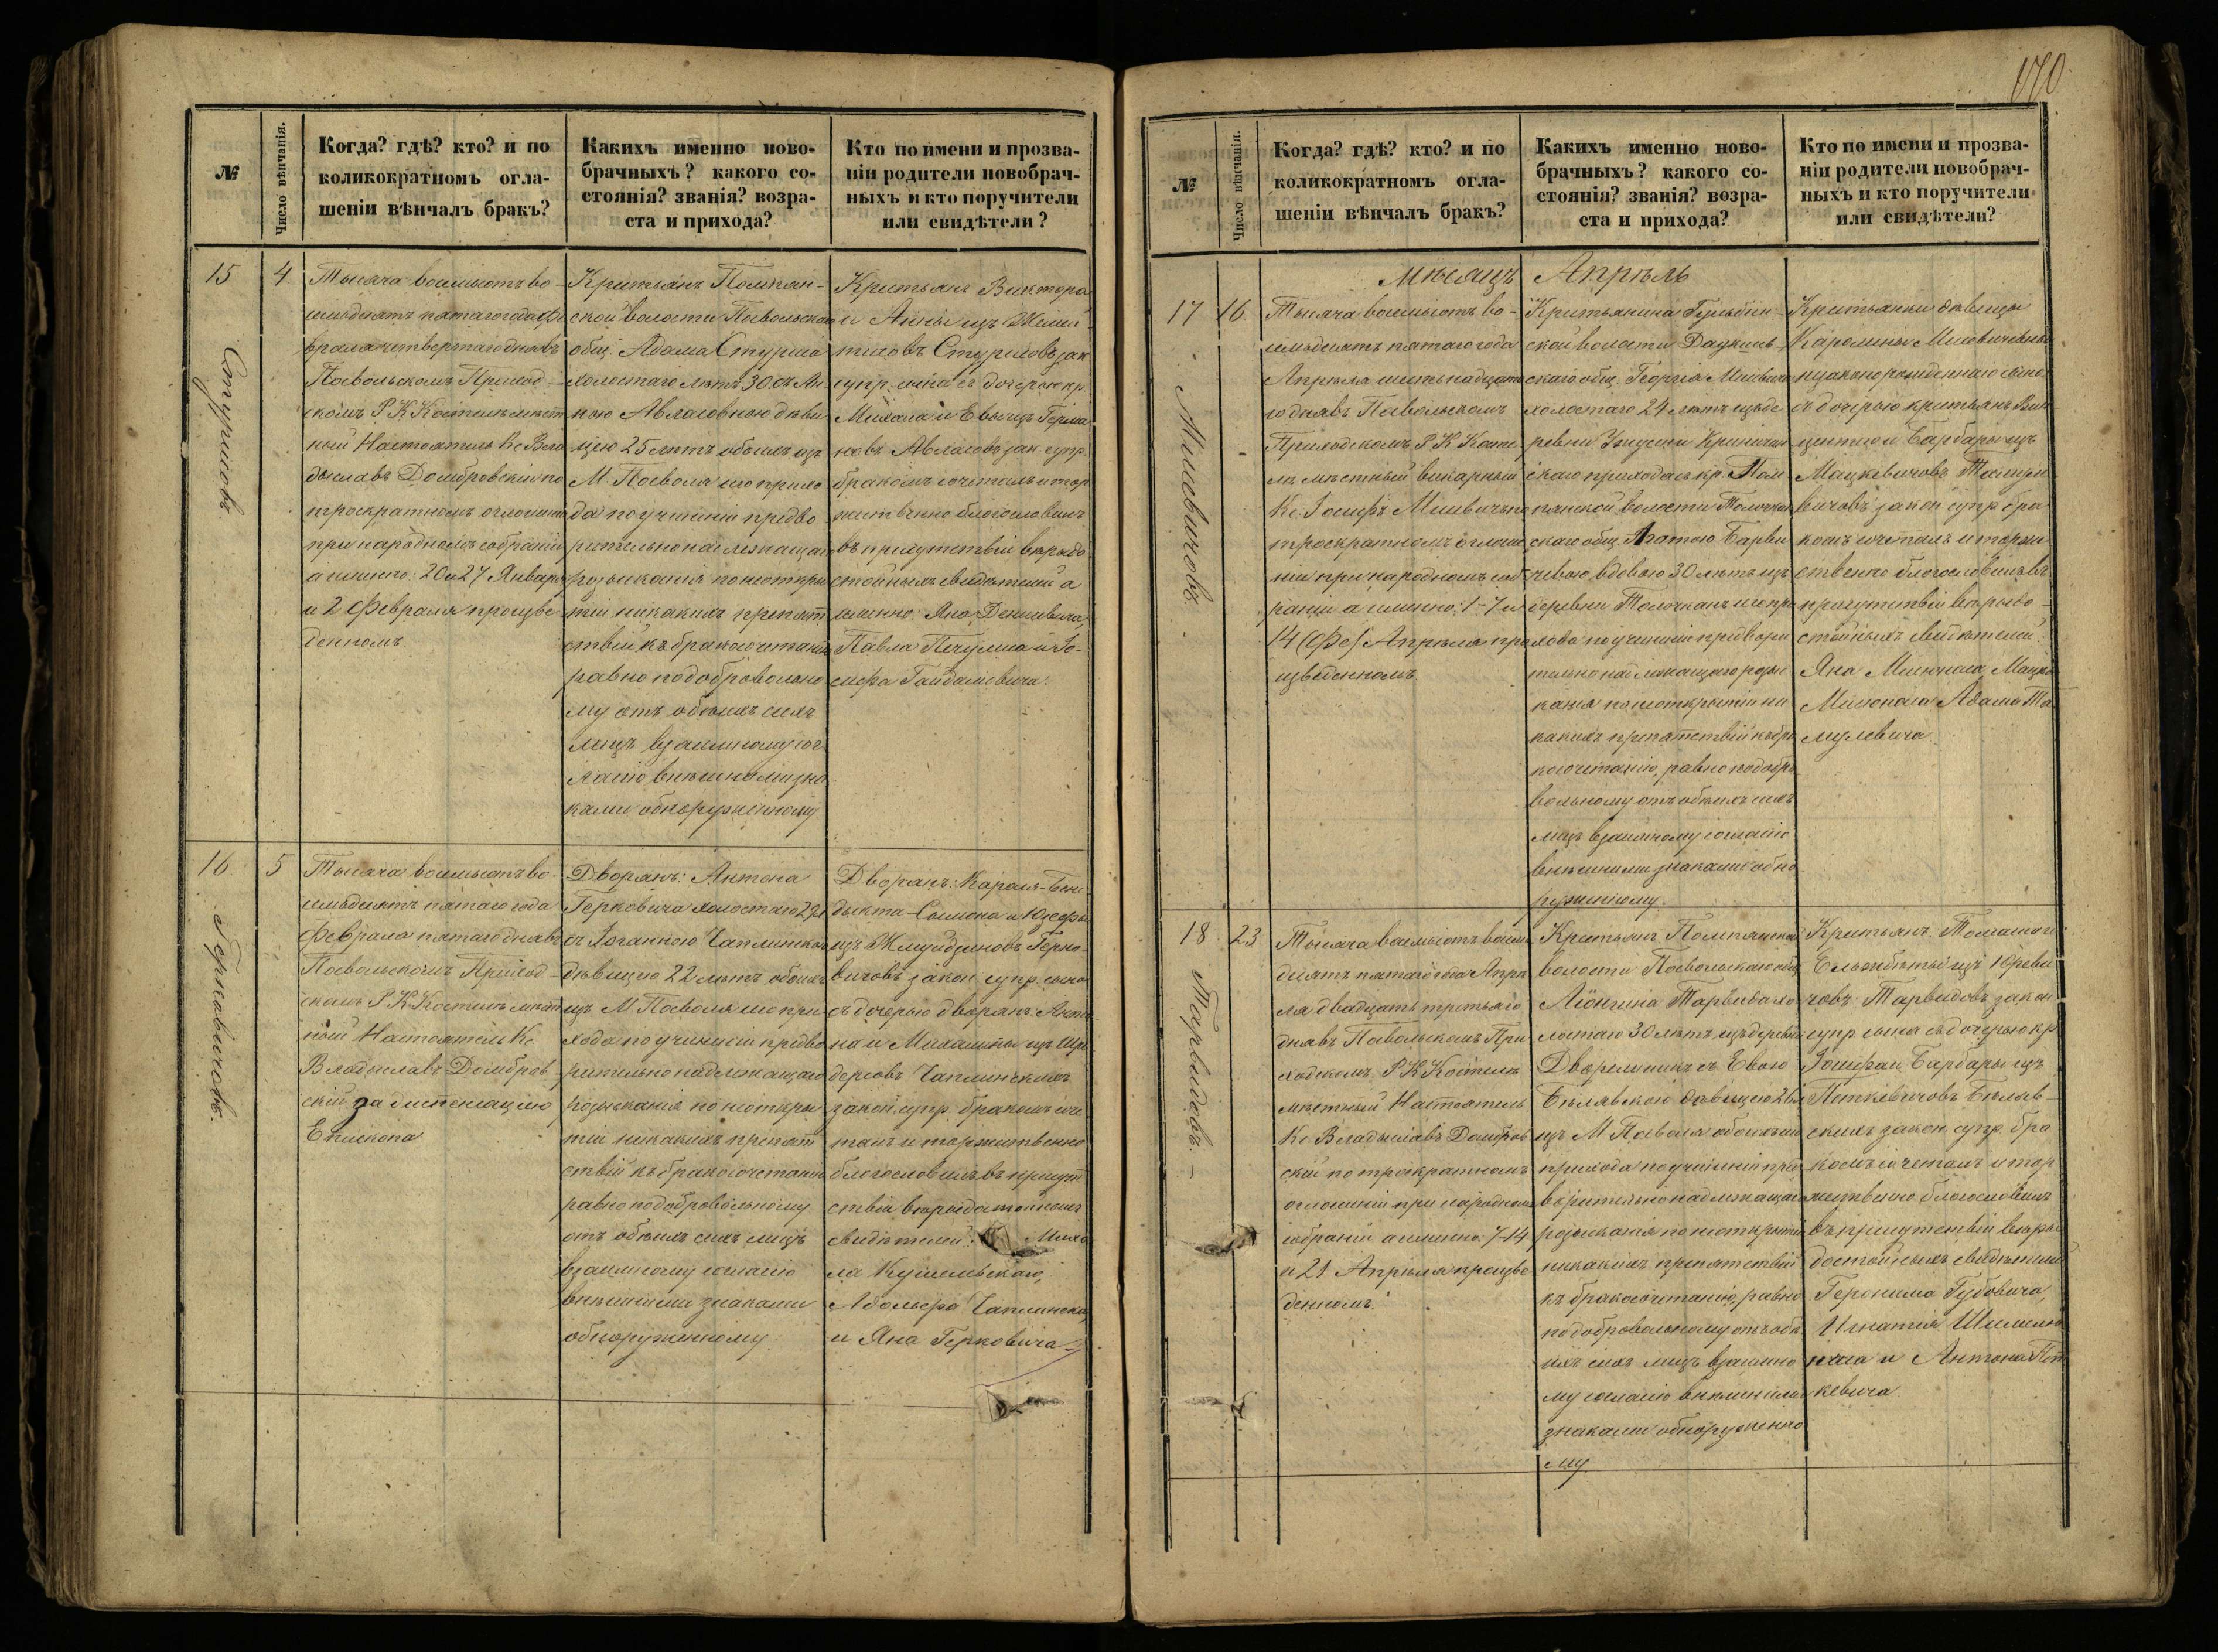 170
№
Число вѣнчанія.
Когда? гдѣ? кто? и по
коликократномъ огла-
шеніи вѣнчалъ бракъ?
Какихъ именно ново-
брачныхъ? какого со-
стоянія? званія? возра-
ста и прихода?
Кто по имени и прозва-
ніи родители новобрач-
ныхъ и кто поручители
или свидѣтели?
15
4
Стурисовъ
Тысяча восемьсотъ во-
семьдесятъ пятаго года Фе
враля четвертаго дня въ
Поевольскомъ Приход-
скомъ Р К Костелѣ мѣст
ный Настоятель Кс Вла
дыславъ Домбровскій по
троекратномъ оглашеніи
при народномъ собраніи
а именно: 20 и 27 Января
и 2 Февраля произве
денномъ.
Крестьянъ Помпян-
ской волости Поевольскаго
общ. Адама Стуриса
холостаго лѣтъ 30 съ Ан
ною Авласовною дѣви
цею 25 лѣтъ обоихъ изъ
М. Поеволя сего прихо
да по учиненіи предва
рительно надлежащаго
розысканія по неоткры
тіи никакихъ препят
ствій къ бракосочетанію
равно по добровольно
му отъ обоихъ сихъ
лицъ взаимному сог
ласію внѣшними зна
ками обнаруженному
Крестьянъ Виктора
и Анны изъ
Стурисовъ зак
супр. сына съ дочерью кр.
Михала и Евы изъ
Авласовъ зак. супр.
бракомъ сочеталъ и тор
жественно благословилъ
въ присутствіи вѣродо
стойныхъ свидѣтелей а
именно: Яна
Павла и Іо-
сифа Гайдамовича.
16
5
Герковичовъ.
Тысяча восемьсотъ во-
семьдесятъ пятаго года
Февраля пятаго дня въ
Поевольскомъ Приход-
скомъ Р. К. Костелѣ мѣст
ный Настоятель Кс
Владыславъ Домбров-
скій за диспенсаціею
Епископа
Дворянъ: Антона
Герковича холостаго 29 л
съ Іоганною Чаплинскою
дѣвицею 22 лѣтъ обоихъ
изъ М. Поеволя сего при
хода по учиненіи предва
рительно надлежащаго
розысканія по неоткры
тіи никакихъ препят
ствій къ бракосочетанію
равно по добровольному
отъ обоихъ сихъ лицъ
взаимному согласію
внѣшними знаками
обнаруженному.
Дворянъ: Кароля-Бене
дыкта-Сымона и Юзефы
изъ Жмуйдзиновъ Герко-
вичовъ закон. супр. сына
съ дочерью дворянъ: Анто
на и Михалины изъ
Чаплинскихъ
закон. супр. бракомъ соче
талъ и торжественно
благословилъ въ присут
ствіи вѣродостойныхъ
свидѣтелей: Миха
ла
Адольфа Чаплинска
и Яна Герковича
№
Число вѣнчанія.
Когда? гдѣ? кто? и по
коликократномъ огла-
шеніи вѣнчалъ бракъ?
Какихъ именно ново-
брачныхъ? какого со-
стоянія? званія? возра-
ста и прихода?
Кто по имени и прозва-
ніи родители новобрач-
ныхъ и кто поручители
или свидѣтели?
Мѣсяцъ Апрѣль
17
16
Мисевичовъ.
Тысяча восемьсотъ во-
семьдесятъ пятаго года
Апрѣля шестьнадцата
го дня въ Поевольскомъ
Приходскомъ Р К Косте
лѣ мѣстный викарный
Кс. Іосифъ Мисевичъ по
троекратномъ оглаше
ніи при народномъ соб
раніи а именно: 1-7 и
14 (Фе) Апрѣля про
изведенномъ
Крестьянина
ской волости
скаго общ. Георгія Мисевича
холостаго 24 лѣтъ изъ де
ревни
скаго прихода съ кр. Пом
пянской волости
скаго общ. Агатою Барви
чевою вдовою 30 лѣтъ изъ
деревни сего при
хода по учиненіи предвари
тельно надлежащаго розыс
канія по неоткрытіи ни
какихъ препятствій къ бра
косочетанію, равно по добро
вольному отъ обоихъ сихъ
лицъ взаимному согласію
внѣшними знаками обна
руженному.
Крестьянки дѣвицы
Каролины Мисевичевны
незаконорожденнаго сына
съ дочерью крестьянъ Вин
центія и Барбары изъ
Мацкевичовъ
закон супр бра
комъ сочеталъ и торже
ственно благословилъ въ
присутствіи вѣродо-
стойныхъ свидѣтелей:
Яна
Адама
18
23
Тарвидовъ.
Тысяча восемьсотъ восемь
десятъ пятаго года Апрѣ
ля двадцать третьяго
дня въ Поевольскомъ При
ходскомъ Р К Костелѣ
мѣстный Настоятель
Кс. Владыславъ Домбров
скій по троекратномъ
оглашеніи при народномъ
собраніи а именно: 7-14
и 21 Апрѣля произве
денномъ.
Крестьянъ Помпянской
волости Поевольскаго общ
Лонгина Тарвида хо
лостаго 30 лѣтъ изъ деревни
съ Евою
Бѣлявскою дѣвицею
изъ М Поеволя обоихъ сего
прихода по учиненіи пред
варительно надлежащаго
розысканія по неоткрытіи
никакихъ препятствій
къ бракосочетанію, равно
по добровольному отъ обо
ихъ сихъ лицъ взаимно
му согласію внѣшними
знаками обнаруженно
му.
Крестьянъ Томаша и
Ельжбѣты изъ
Тарвидовъ закон
супр. сына съ дочерью кр.
Іосифа и Барбары изъ
Петкевичовъ Бѣляв-
скихъ закон супр бра
комъ сочеталъ и тор
жественно благословилъ
въ присутствіи вѣро
достойныхъ свидѣтелей
Геронима Губовича,
Игнатія
и Антона Пет
кевича